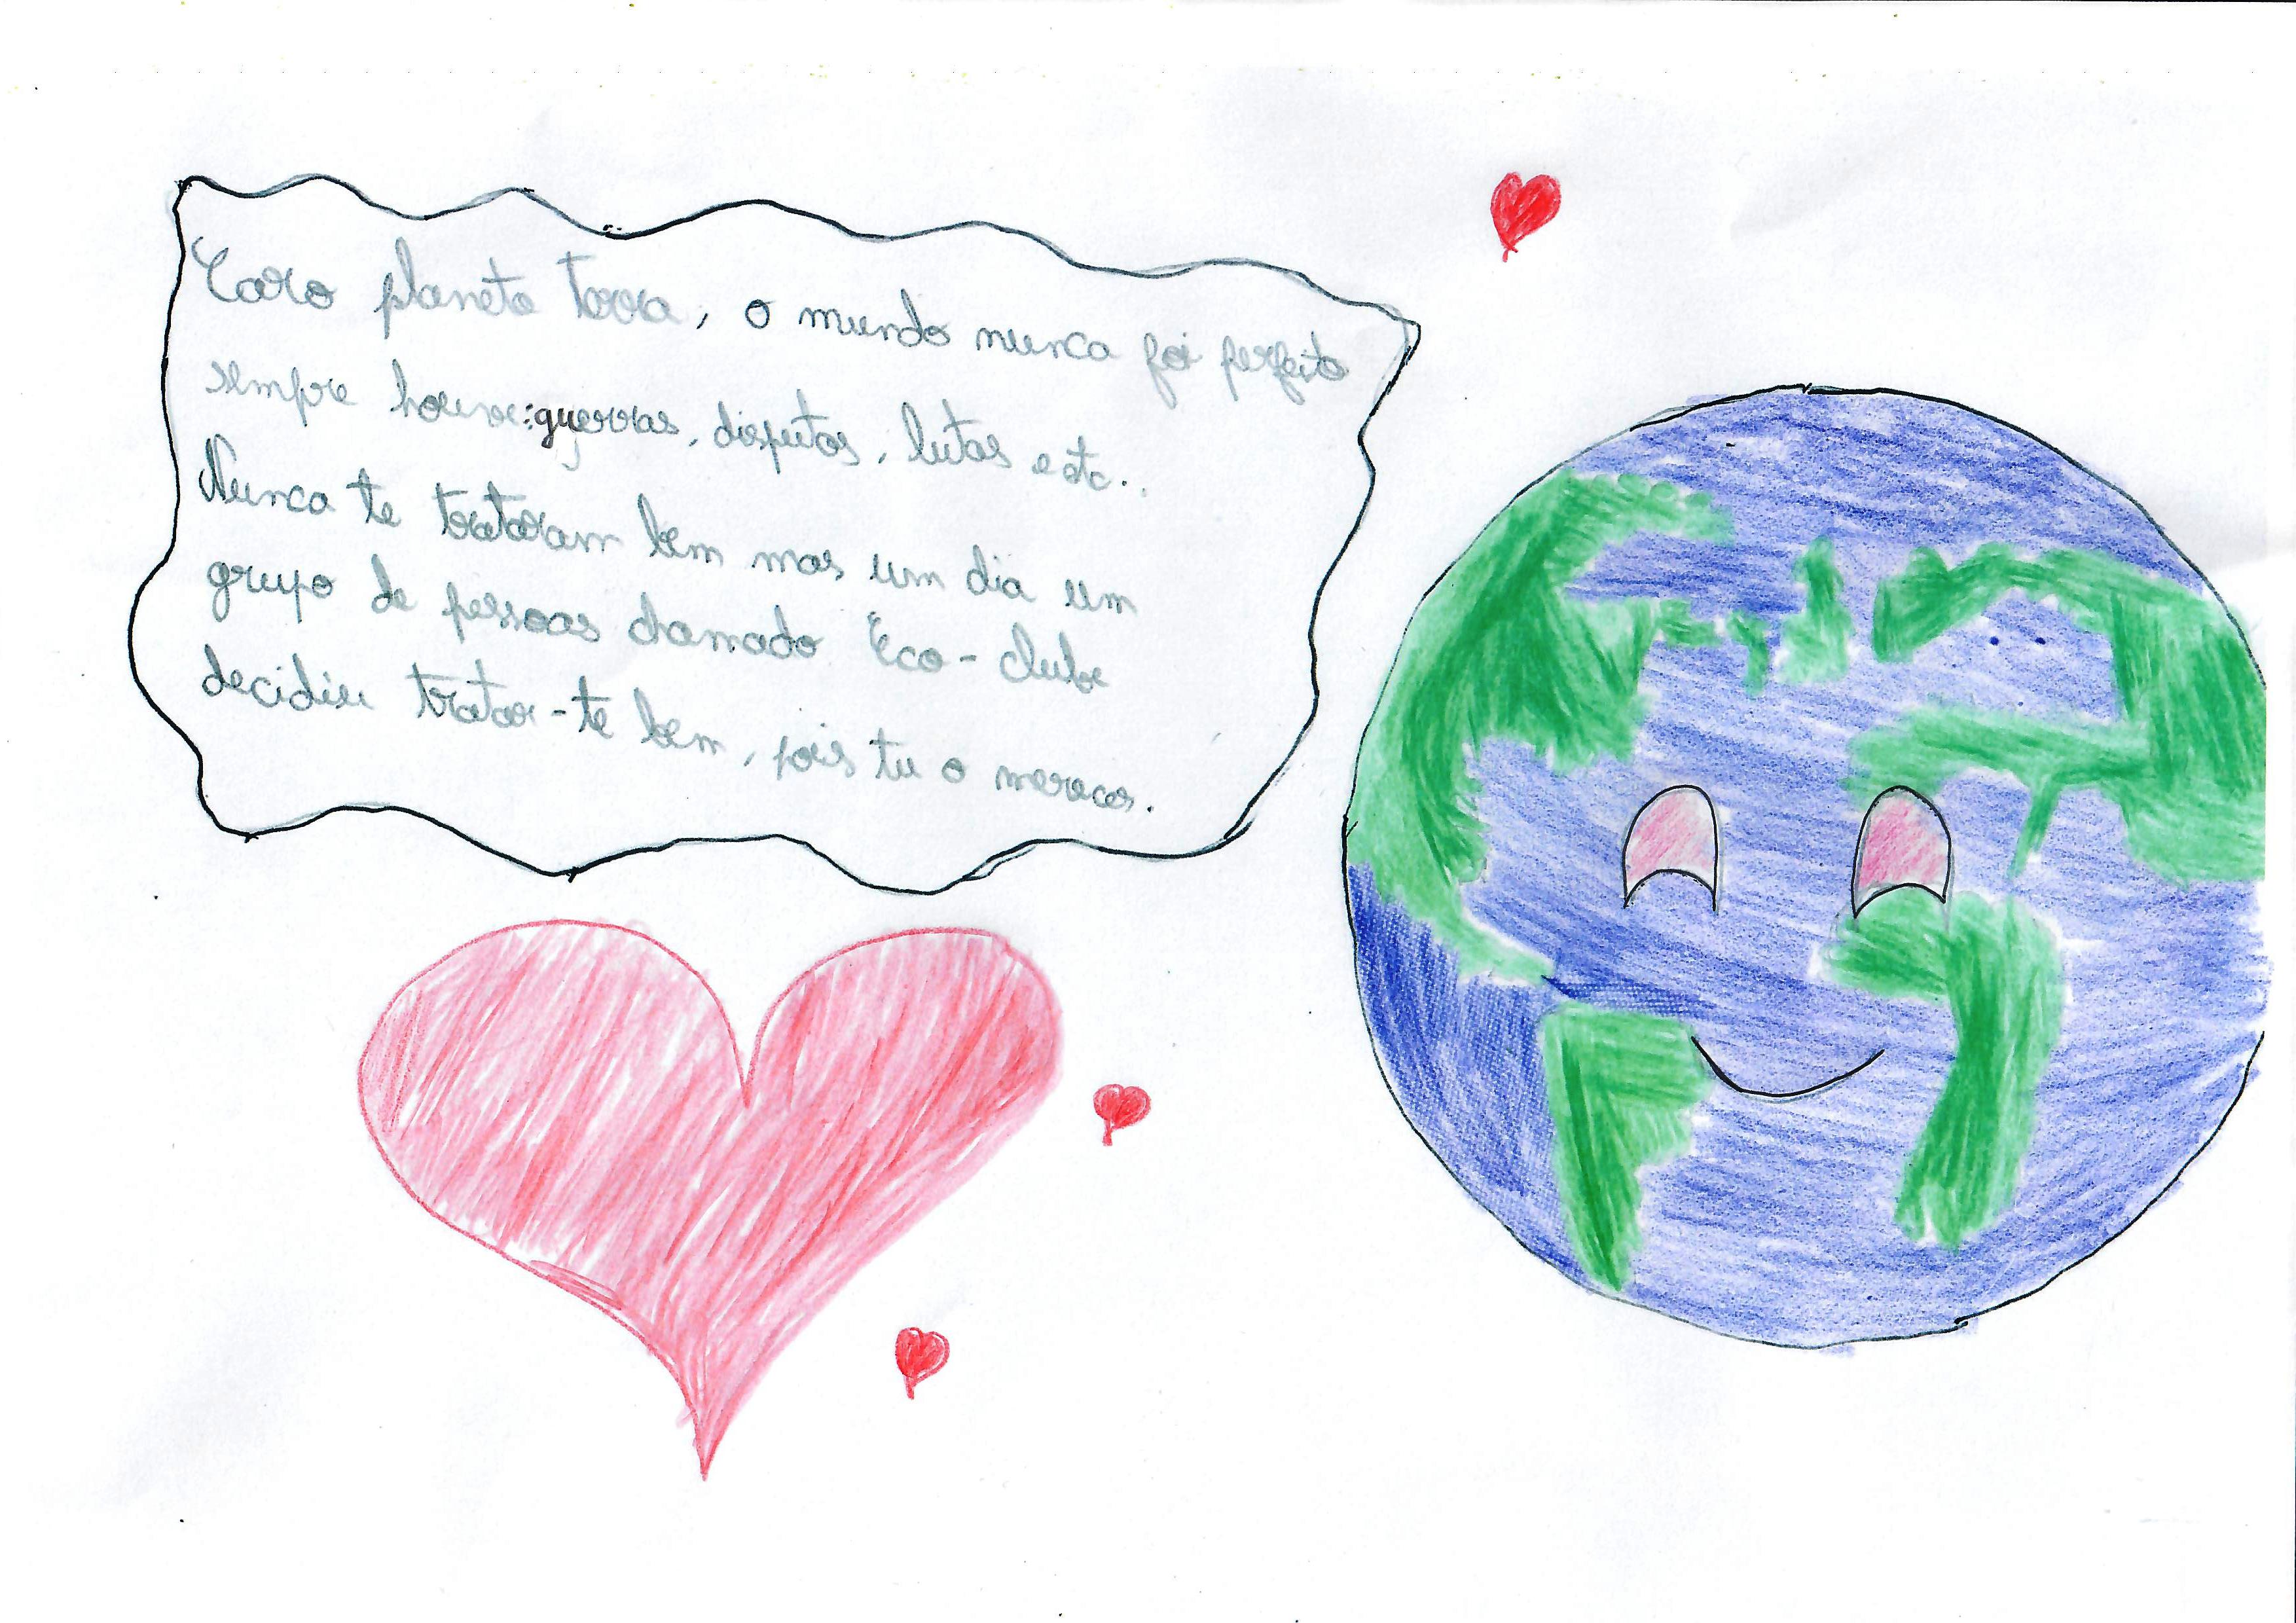 Caro planeta terra, o mundo nunca foi perfeito
sempre houve:guerras, disputas, lutas e etc..
Nunca te trataram bem mas um dia um
grupo de pessoas chamado Eco-clube
decidiu tratar-te bem, pois tu o mereces.